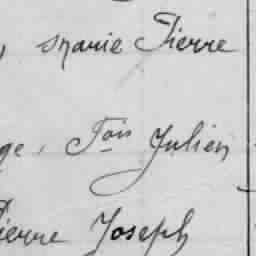 , Marie Pierre
ge. Fois Julien
Pierre Joseph